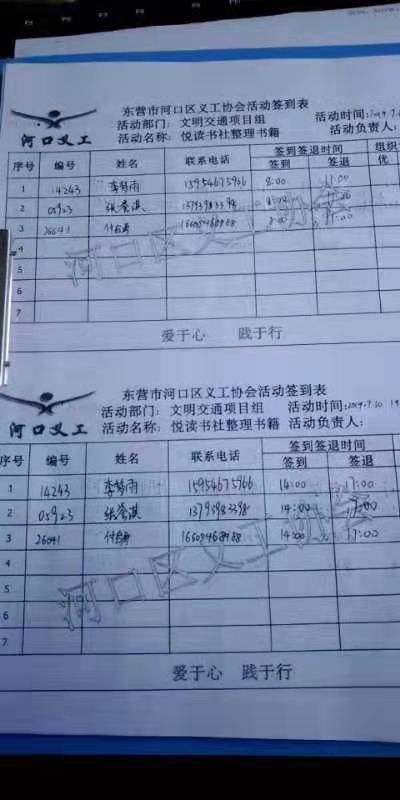 东营市河口区义工协会活动签到表
河口义工
活动部门: 文明交通项目组 活动时间:
活动名称: 悦读书社整理书籍 活动负责人:
序号 编号 姓名 联系电话 签到签退时间
签到 签退 优
1 14243 李梦雨 15954675966 8:00 11:00
2 05923
3 26041 8:00 11:00
4
5
6
7
河口区义工协会
爱于心 践于行
东营市河口区义工协会活动签到表
河口义工
活动部门: 文明交通项目组 活动时间:2019.7.20
活动名称: 悦读书社整理书籍 活动负责人:
序号 编号 姓名 联系电话 签到签退时间
签到 签退
1 14243 李梦雨 15954675966 14:00 17:00
2 05923 14:00 17:00
3 26041 14:00 17:00
4
5
6
7
河口区义工协会
爱于心 践于行